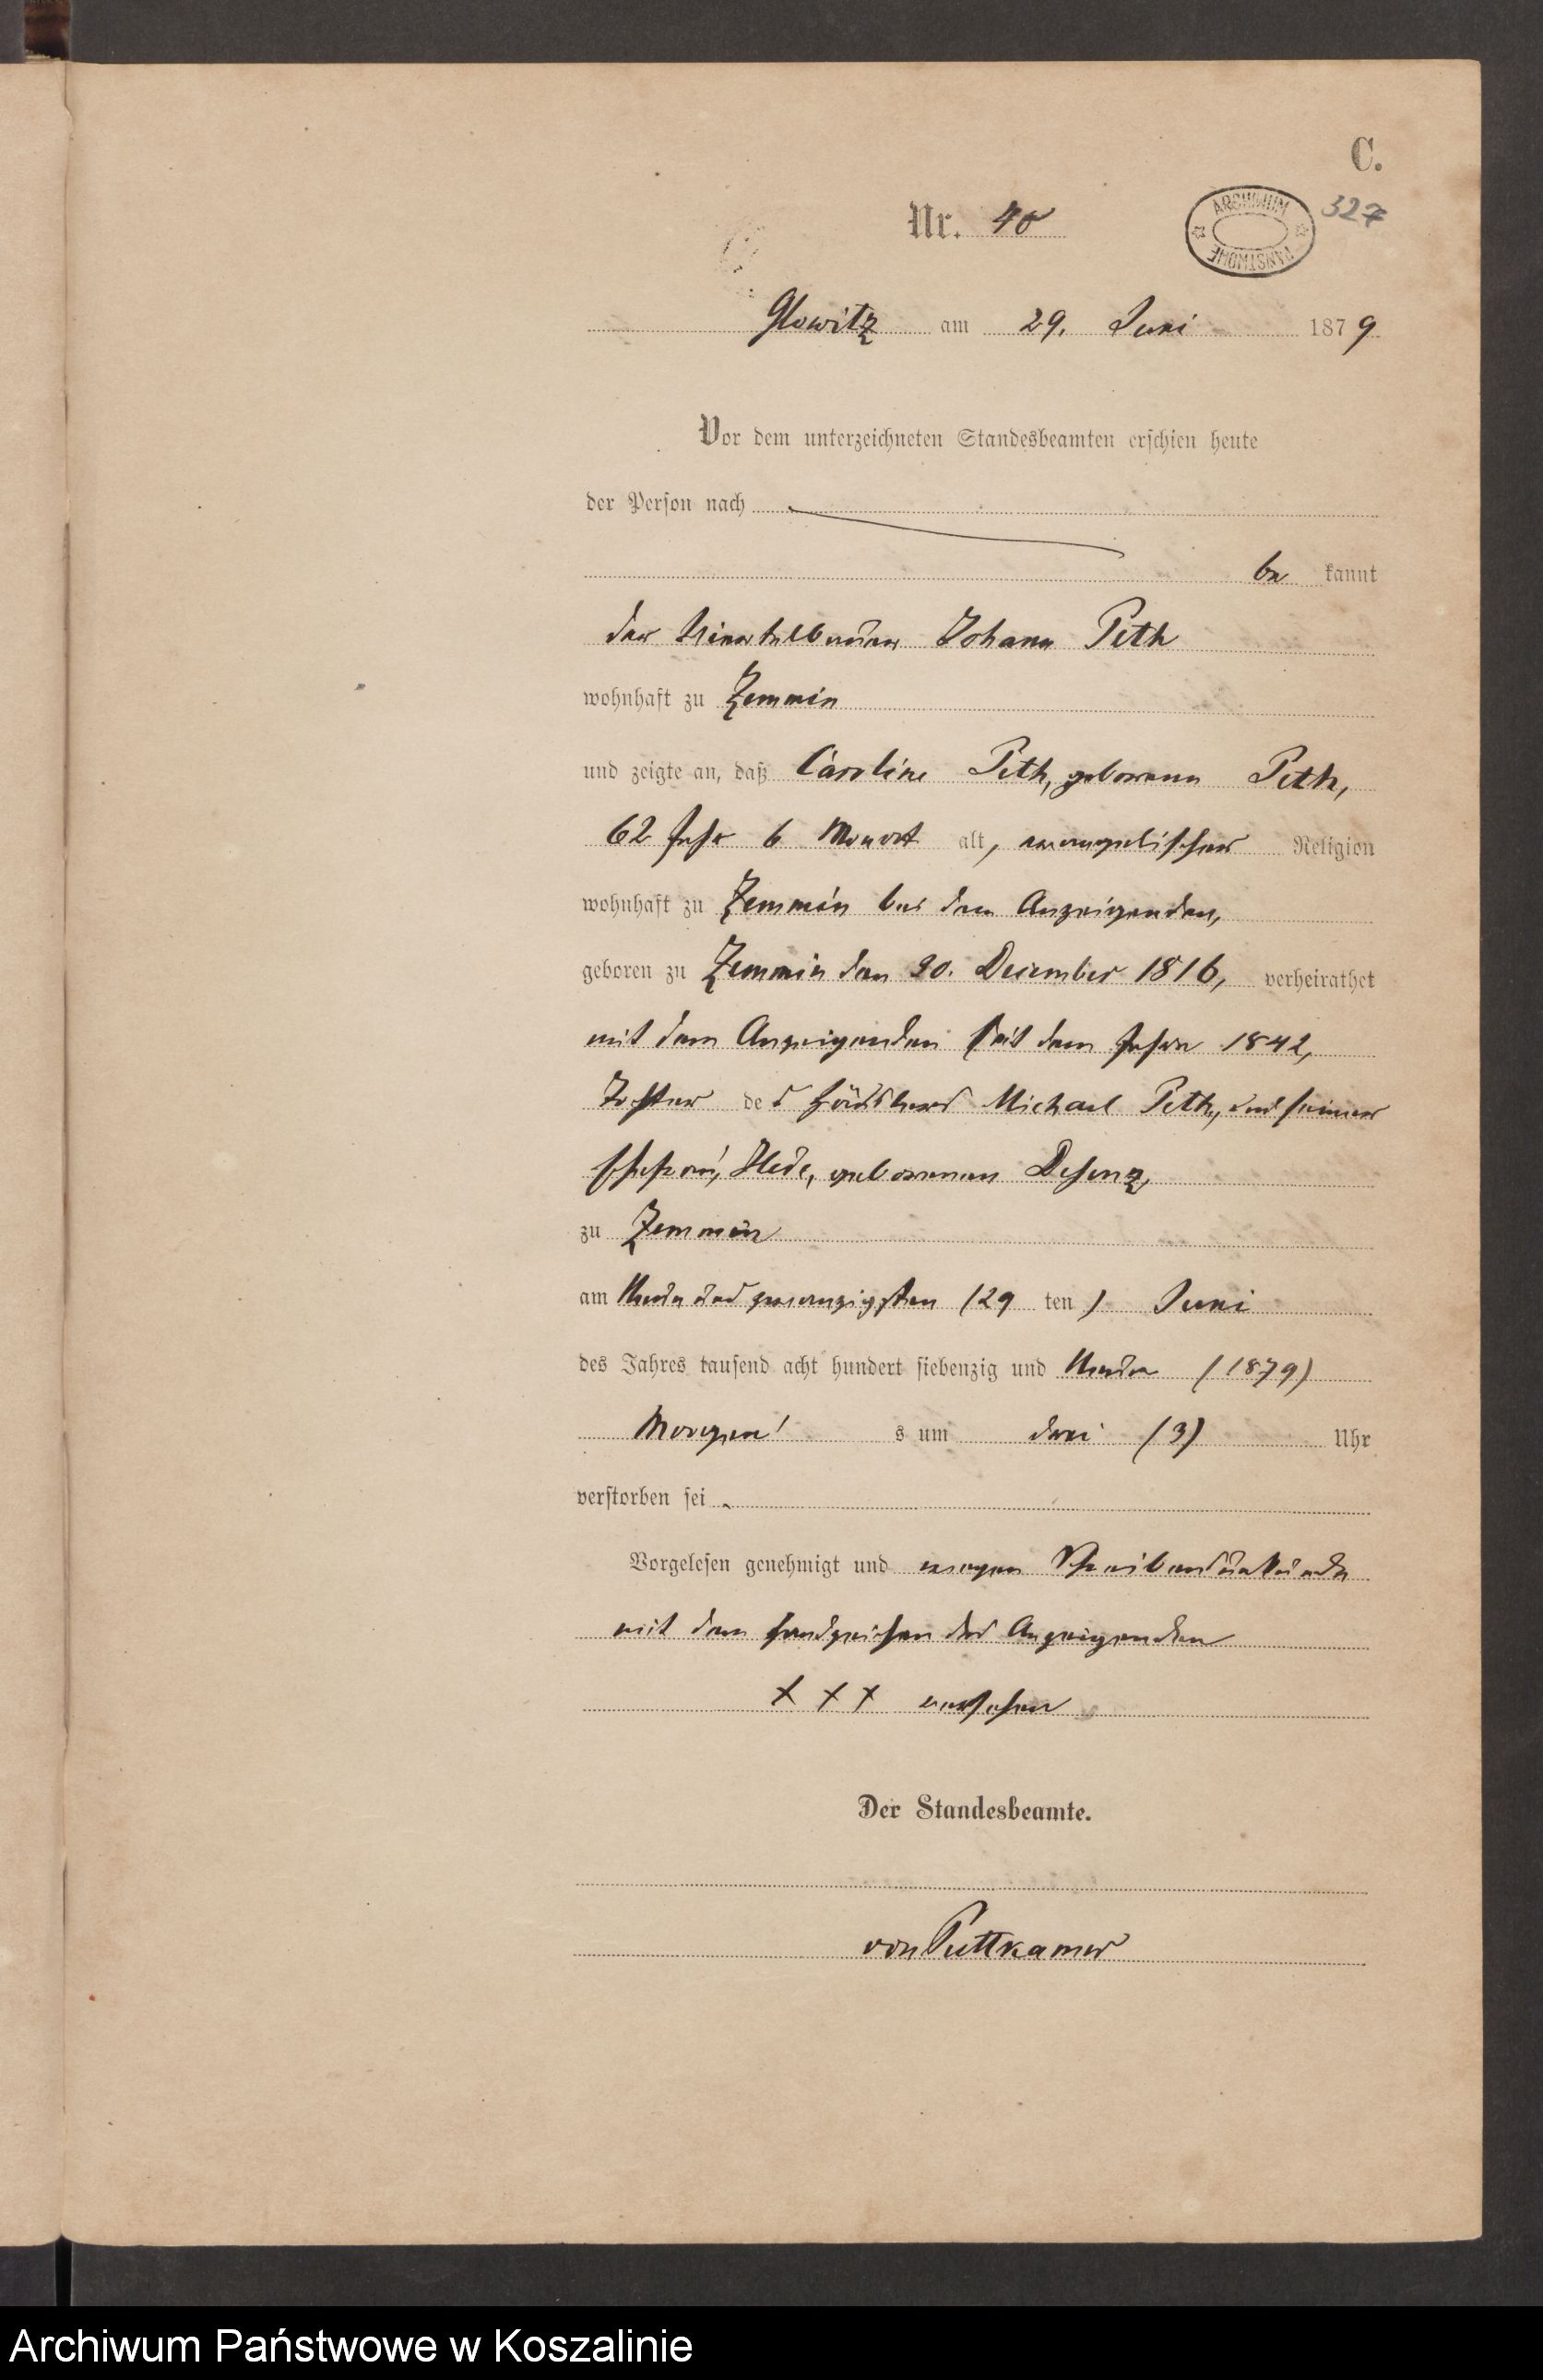 C.
Nr. 40
ARCHIWUM PAŃSTWOWE
327
Glowitz am 29. Juni 1879
Vor dem unterzeichneten Standesbeamten erschien heute
der Person nach
be kannt
der Viertelbauer Johann Peth
wohnhaft zu Zemmin
und zeigte an, daß Caroline Peth, geborene Peth,
62 Jahr 6 Monat alt, evangelischer Religion
wohnhaft zu Zemmin bei dem Anzeigenden,
geboren zu Zemmin den 20. December 1816, verheirathet
mit dem Anzeigenden seit dem Jahre 1842,
Tochter des Michael Peth, und seiner
Ehefrau, geborenen
zu Zemmin
am Neun und zwanzigsten (29 ten) Juni
des Jahres tausend acht hundert siebenzig und Neun (1879)
Morgen s um drei (3) Uhr
verstorben sei
Vorgelesen genehmigt und wegen Schreibensunkunde
mit dem Handzeichen des Anzeigenden
X X X versehen
Der Standesbeamte.
von Puttkamer
Archiwum Państwowe w Koszalinie